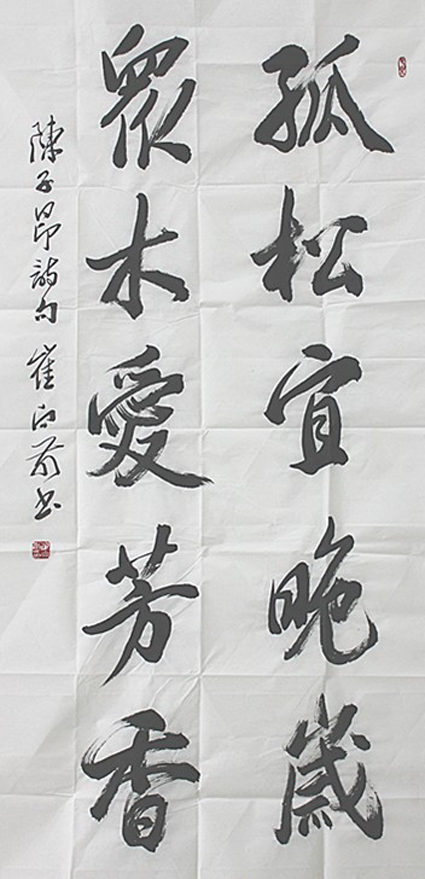 孤松宜晚歲
眾木愛芳香
陳子昂詩句 崔白前書